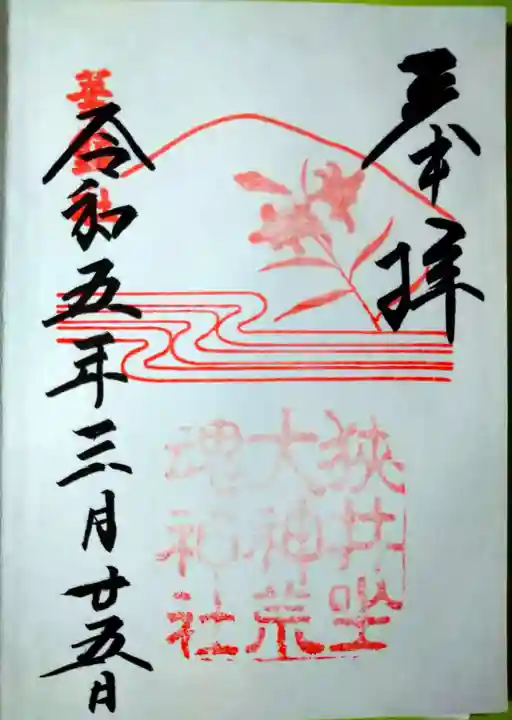 奉拝
狹井坐
大神荒
魂神社
華鎮社
令和五年三月廿五日